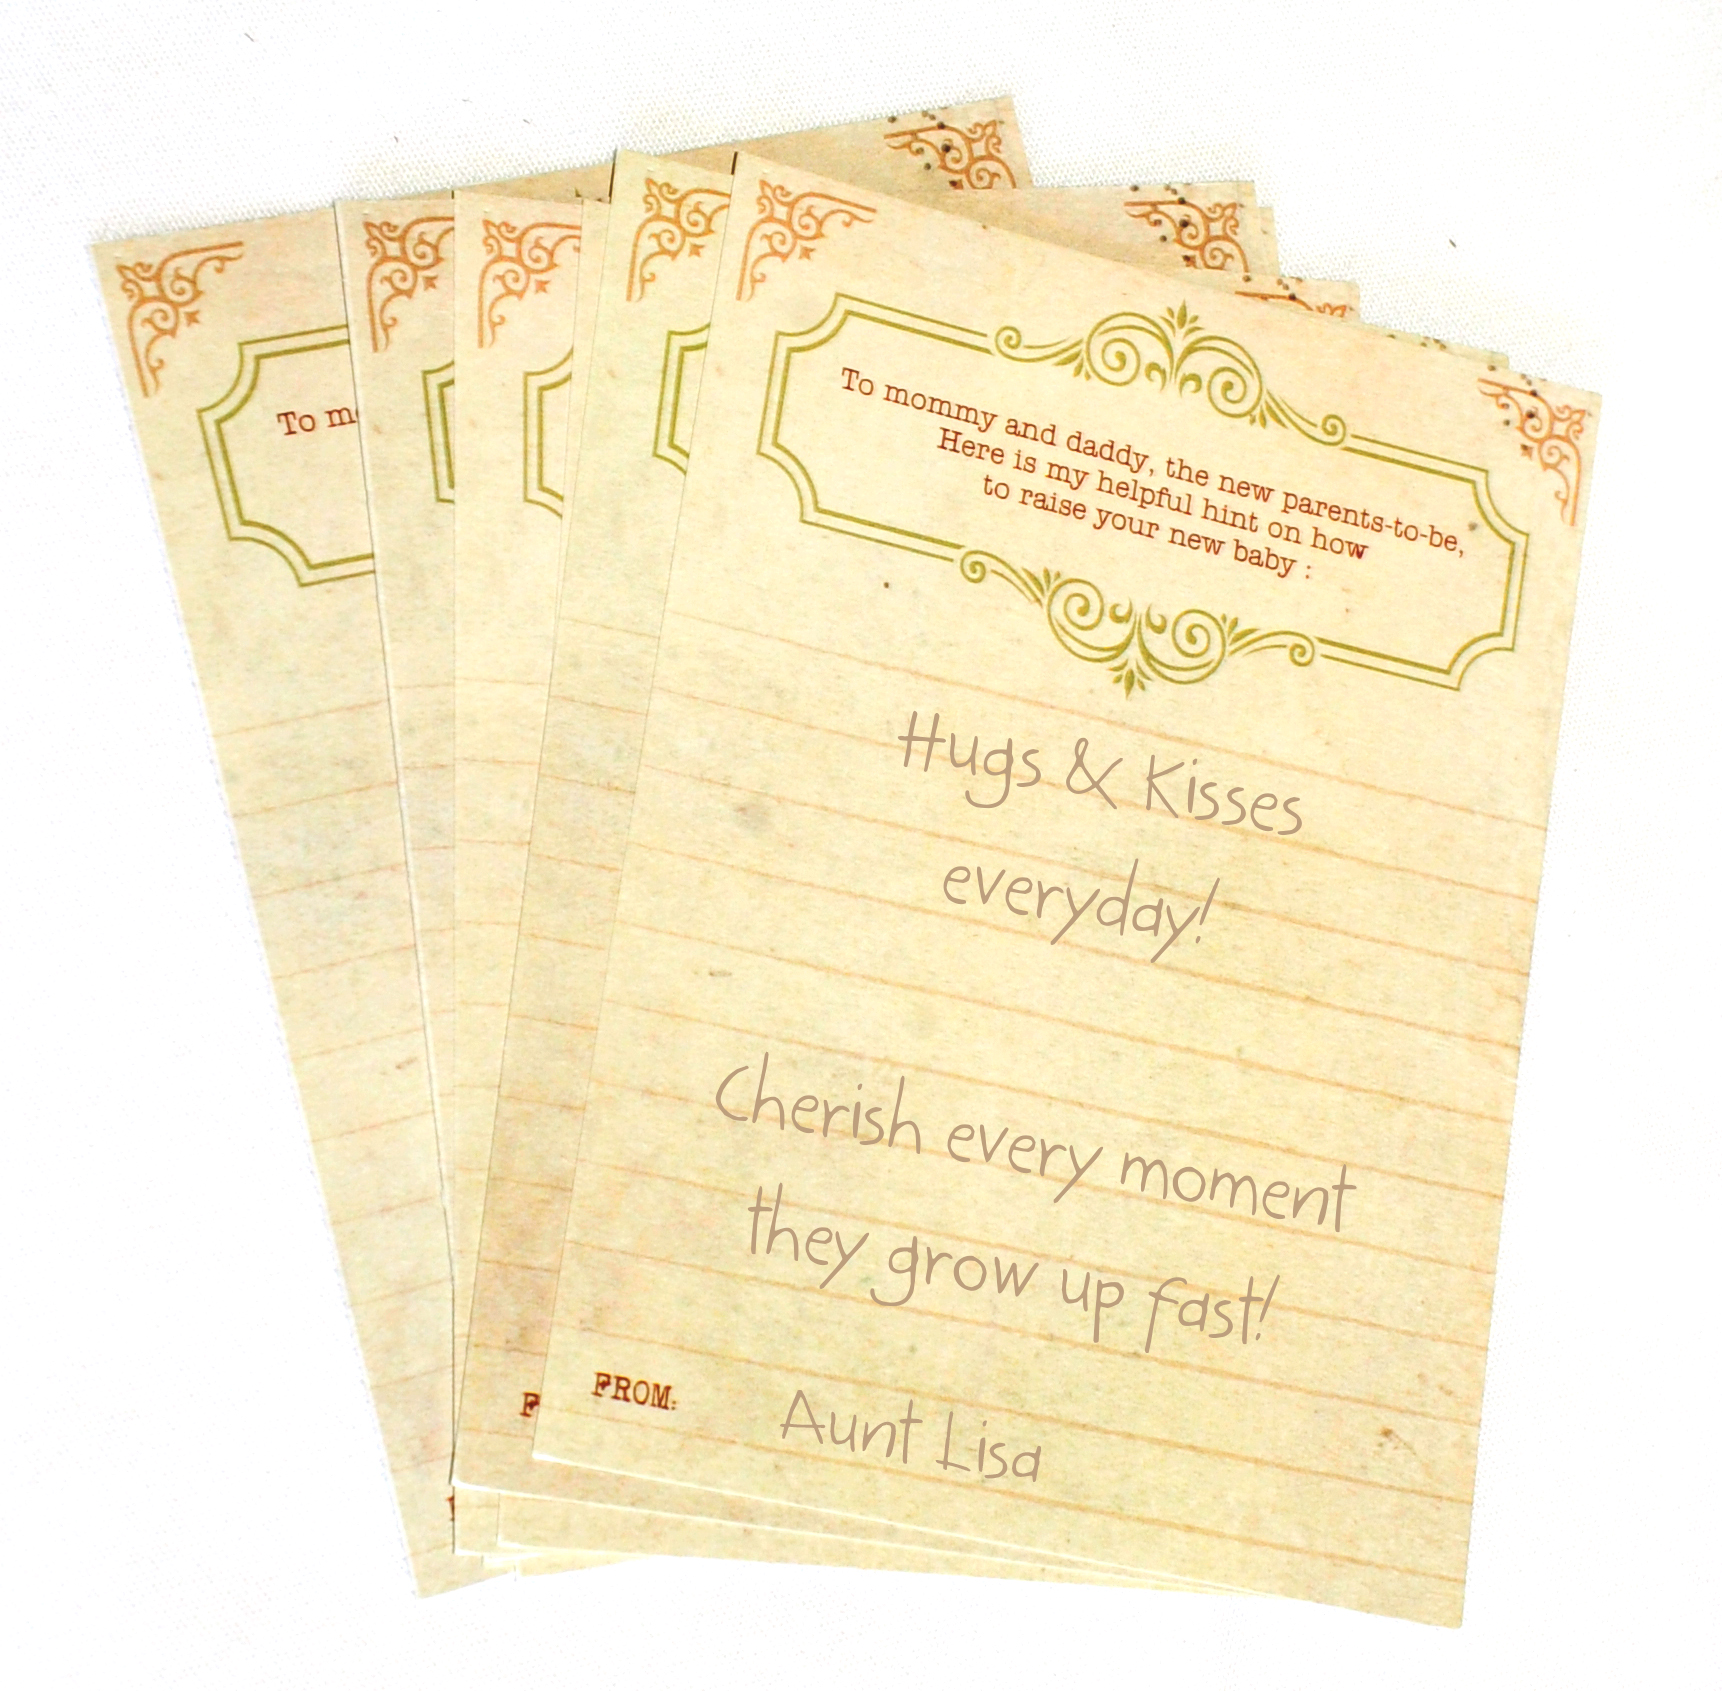 To mommy and daddy, the new parents-to-be,
Here is my helpful hint on how
to raise your new baby :
Hugs & Kisses
everyday!
Cherish every moment
they grow up fast!
FROM: Aunt Lisa
To